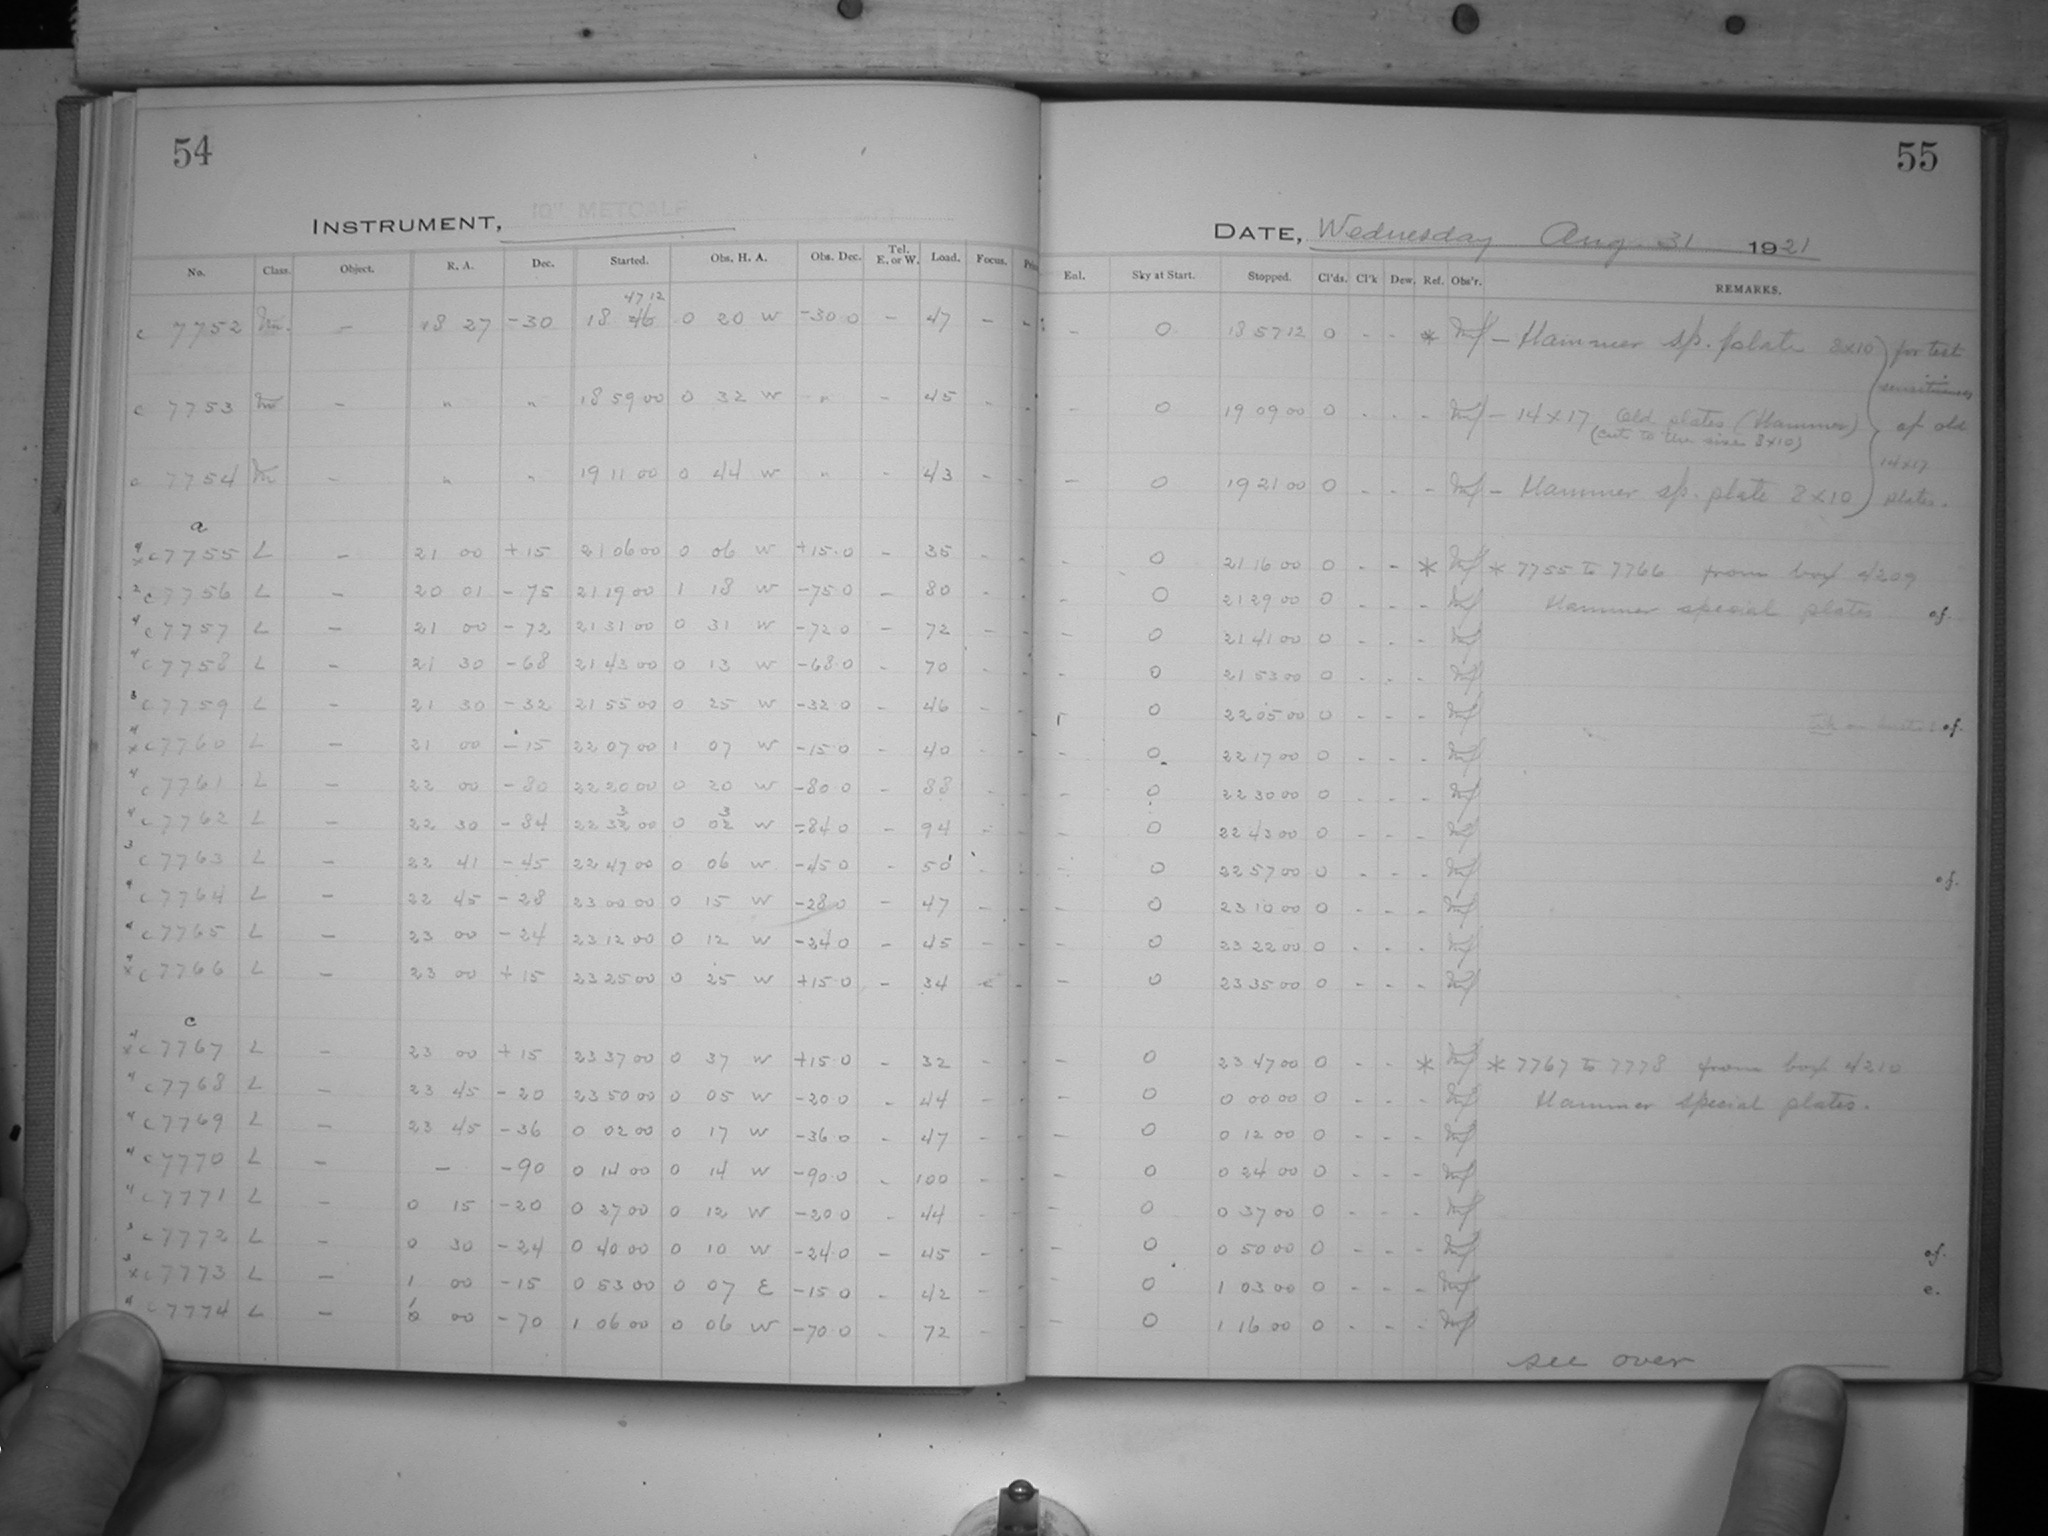 54
INSTRUMENT, 10" METCALF
No. Class. Object. R. A. Dec. Started. Obs. H. A. Obs. Dec. Tel. E. or W. Load. Focus.
47 12
c 7752 - 18 27 -30 18 46 0 20 W -30 0 - 47 - -
c 7753 - " " 18 59 00 0 32 W " - 45 - -
c 7754 - " " 19 11 00 0 44 W " - 43 - -
a
4 x c 7755 L - 21 00 +15 21 06 00 0 06 W +15.0 - 35 - -
2 c 7756 L - 20 01 -75 21 19 00 1 18 W -75 0 - 80 - -
4 c 7757 L - 21 00 -72 21 31 00 0 31 W -72 0 - 72 - -
4 c 7758 L - 21 30 -68 21 43 00 0 13 W -68.0 - 70 - -
3 c 7759 L - 21 30 -32 21 55 00 0 25 W -32 0 - 46 - -
4 x c 7760 L - 21 00 -15 22 07 00 1 07 W -15 0 - 40 - -
4 c 7761 L - 22 00 -80 22 20 00 0 20 W -80 0 - 88 - -
4 c 7762 L - 22 30 -84 22 33 00 0 03 W -84 0 - 94 - -
3 c 7763 L - 22 41 -45 22 47 00 0 06 W -45 0 - 50 - -
4 c 7764 L - 22 45 -28 23 00 00 0 15 W -28 0 - 47 - -
4 c 7765 L - 23 00 -24 23 12 00 0 12 W -24 0 - 45 - -
4 x c 7766 L - 23 00 +15 23 25 00 0 25 W +15.0 - 34 - -
c
4 x c 7767 L - 23 00 +15 23 37 00 0 37 W +15.0 - 32 - -
4 c 7768 L - 23 45 -20 23 50 00 0 05 W -20 0 - 44 - -
4 c 7769 L - 23 45 -36 0 02 00 0 17 W -36 0 - 47 - -
4 c 7770 L - - -90 0 14 00 0 14 W -90 0 - 100 - -
4 c 7771 L - 0 15 -20 0 27 00 0 12 W -20 0 - 44 - -
3 c 7772 L - 0 30 -24 0 40 00 0 10 W -24 0 - 45 - -
3 x c 7773 L - 1 00 -15 0 53 00 0 07 E -15 0 - 42 - -
4 c 7774 L - 1 00 -70 1 06 00 0 06 W -70 0 - 72 - -
55
DATE, Wednesday Aug. 31 1921
Enl. Sky at Start. Stopped. Cl'ds. Cl'k Dew. Ref. Obs'r. REMARKS.
- 0 18 57 12 0 - - * - Hammer sp. plate 8x10 for test
sensitiveness
- 0 19 09 00 0 - - - - 14x17 Old plates (Hammer) of old
(cut to the size 8x10)
14x17
- 0 19 21 00 0 - - - - Hammer sp. plate 8x10 plates.
- 0 21 16 00 0 - - * * 7755 to 7766 from box 4209
- 0 21 29 00 0 - - - Hammer special plates of.
- 0 21 41 00 0 - - -
- 0 21 53 00 0 - - -
0 22 05 00 0 - - - of.
- 0 22 17 00 0 - - -
- 0 22 30 00 0 - - -
- 0 22 43 00 0 - - -
- 0 22 57 00 0 - - - of.
- 0 23 10 00 0 - - -
- 0 23 22 00 0 - - -
- 0 23 35 00 0 - - -
- 0 23 47 00 0 - - * * 7767 to 7778 from box 4210
- 0 0 00 00 0 - - - Hammer special plates.
- 0 0 12 00 0 - - -
- 0 0 24 00 0 - - -
- 0 0 37 00 0 - - -
- 0 0 50 00 0 - - - of.
- 0 1 03 00 0 - - - e.
- 0 1 16 00 0 - - -
see over